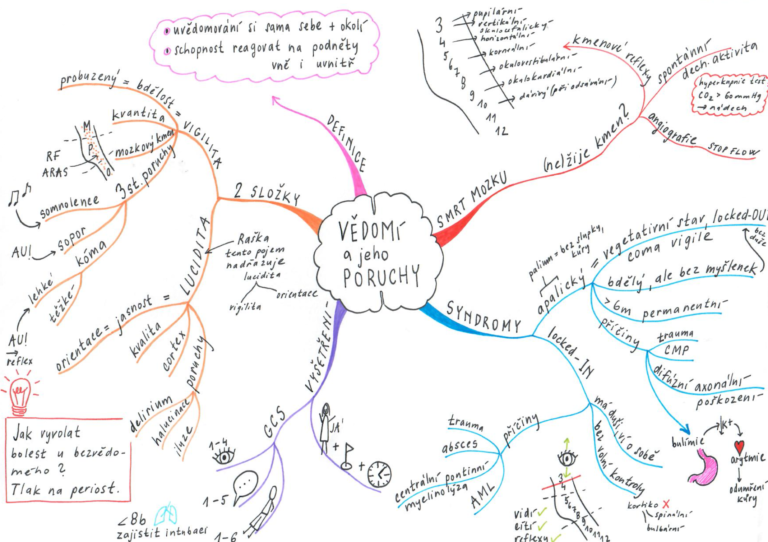 uvědomování si sama sebe + okolí
schopnost reagovat na podněty
vně i uvnitř
DEFINICE
VĚDOMÍ
a jeho
PORUCHY
2 SLOŽKY
VIGILITA
probuzený = bdělost =
kvantita
mozkový kmen
M
P
O
RF
ARAS
3 st. poruchy
somnolence
sopor
AU!
kóma
lehké
těžké
AU!
→
reflex
LUCIDITA
Raška
tento pojem
nadřazuje
lucidita
vigilita
orientace
orientace = jasnost =
kvalita
cortex
poruchy
delirium
halucinace
iluze
Jak vyvolat
bolest u bezvědo-
mého?
Tlak na periost.
VYŠETŘENÍ
GCS
1-4
1-5
1-6
<8b
zajistit intubaci
JÁ
+
+
SMRT MOZKU
(ne)žije kmen?
kmenové reflexy
3
4
5
6
7
8
9
10
11
12
pupilární
vertikální
okulocefalický
horizontální
korneální
okulovestibulární
okulokardiální
dávivý (při odsávání)
spontánní
dech. aktivita
hyperkapnie test
CO2 > 60mmHg
→ nádech
angiografie STOP FLOW
SYNDROMY
apalický = vegetativní stav, locked-OUT
coma vigile
palium = bez slupky,
kůry
bez
duše
bdělý, ale bez myšlenek
>6m permanentní
příčiny
trauma
CMP
difúzní axonální
poškození
bulimie
↓K+
arytmie
odumření
kůry
locked-IN
má duši, ví o sobě
bez volní kontroly
příčiny
trauma
absces
centrální pontinní
myelinolýza
AML
3
4
5
6
7
8
9
10
11
12
vidí ✓
cítí ✓
reflexy ✓
kortiko X
spinální
bulbární